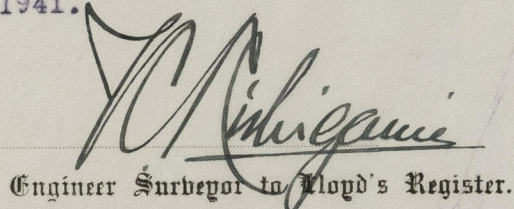 1941.
Engineer Surveyor to Lloyd's Register.